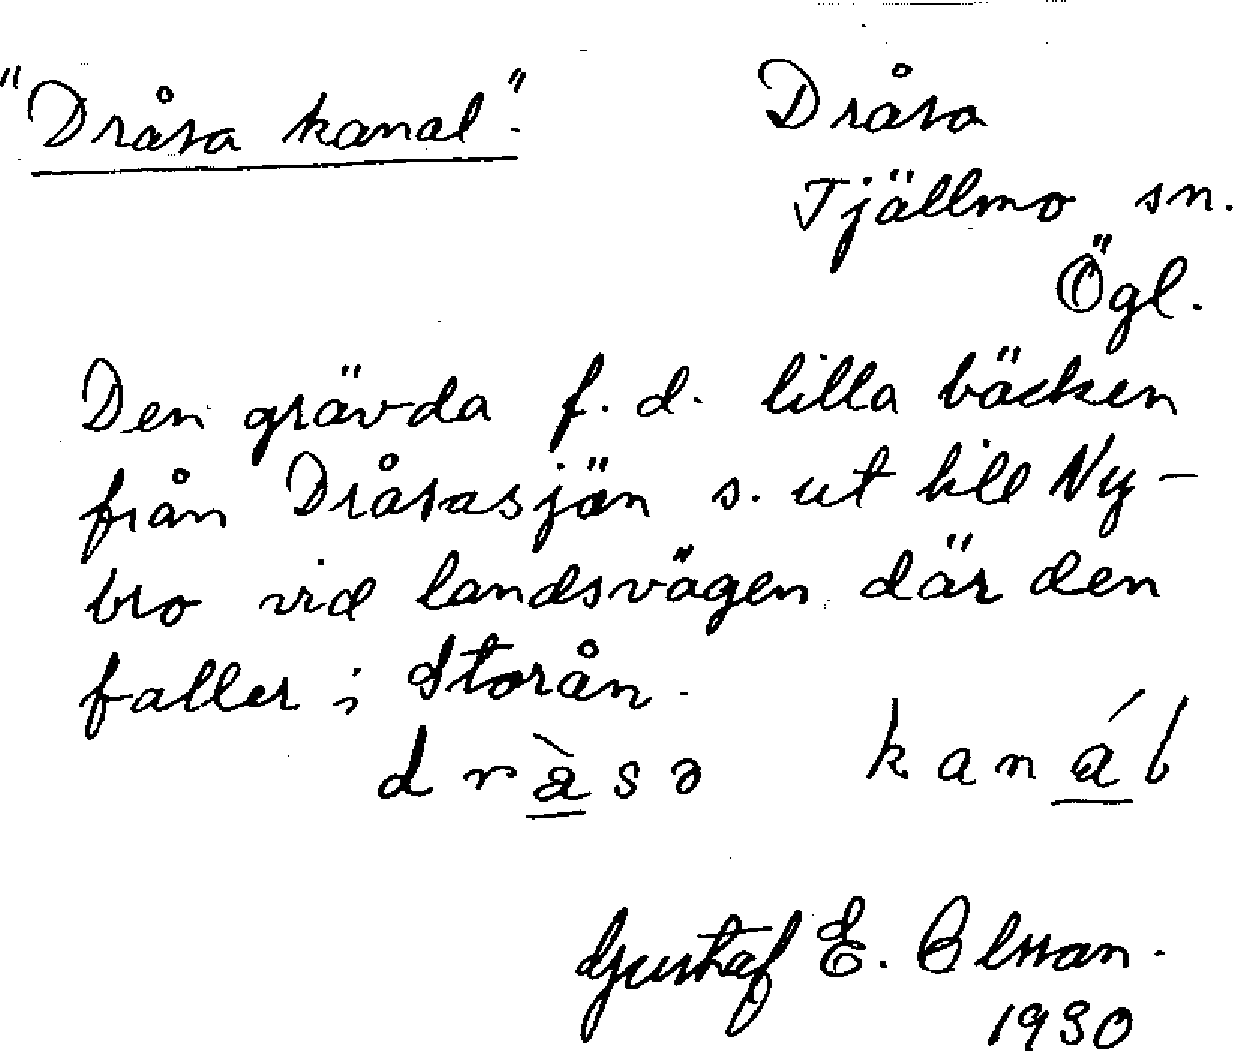 "Dråsa kanal".
Dråsa
Tjällmo sn.
Ögl.
Den grävda f. d. lilla bäcken
från Dråsasjön s. ut till Ny-
bro vid landsvägen där den
faller i Storån.
dràsə kanáɫ
Gustaf E. Olsson.
1930